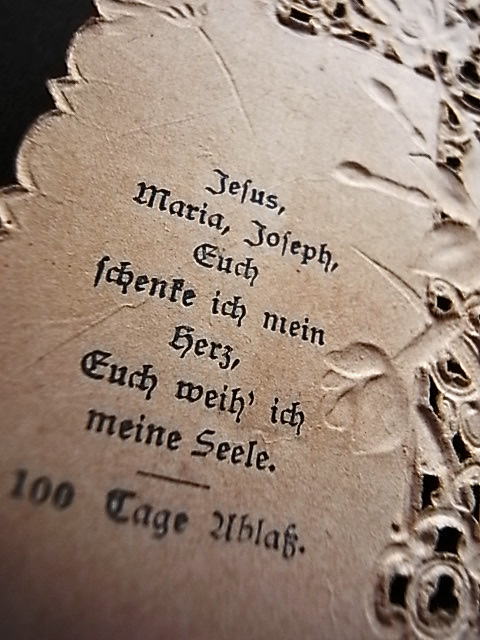 Jesus,
Maria, Joseph,
Euch
schenke ich mein
Herz,
Euch weih' ich
meine Seele.
100 Tage Ablaß.